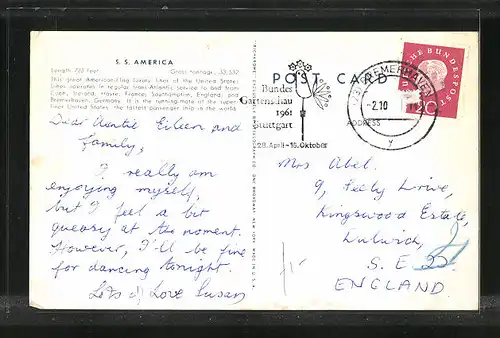 S. S. AMERICA
Length 723 feet Gross tonnage 33,532
This great American-Flag luxury liner of the United States
Lines operates in regular trans-Atlantic service to and from
Cobh, Ireland, Havre, France, Southampton, England, and
Bremerhaven, Germany. It is the running-mate of the super-
liner United States, the fastest passenger ship in the world.
Dear Auntie Eileen and
family,
I really am
enjoying myself,
but I feel a bit
queasy at the moment.
However, I'll be fine
for dancing tonight.
Lots of Love Susan
POST CARD
ADDRESS
Bundes
Gartenschau
1961
Stuttgart
28. April - 15. Oktober
BREMERHAVEN
-2.10
y
DEUTSCHE BUNDESPOST
20
Mrs Abel.
9, Peeby Drive,
Kingswood Estate,
Dulwich,
S. E.
ENGLAND